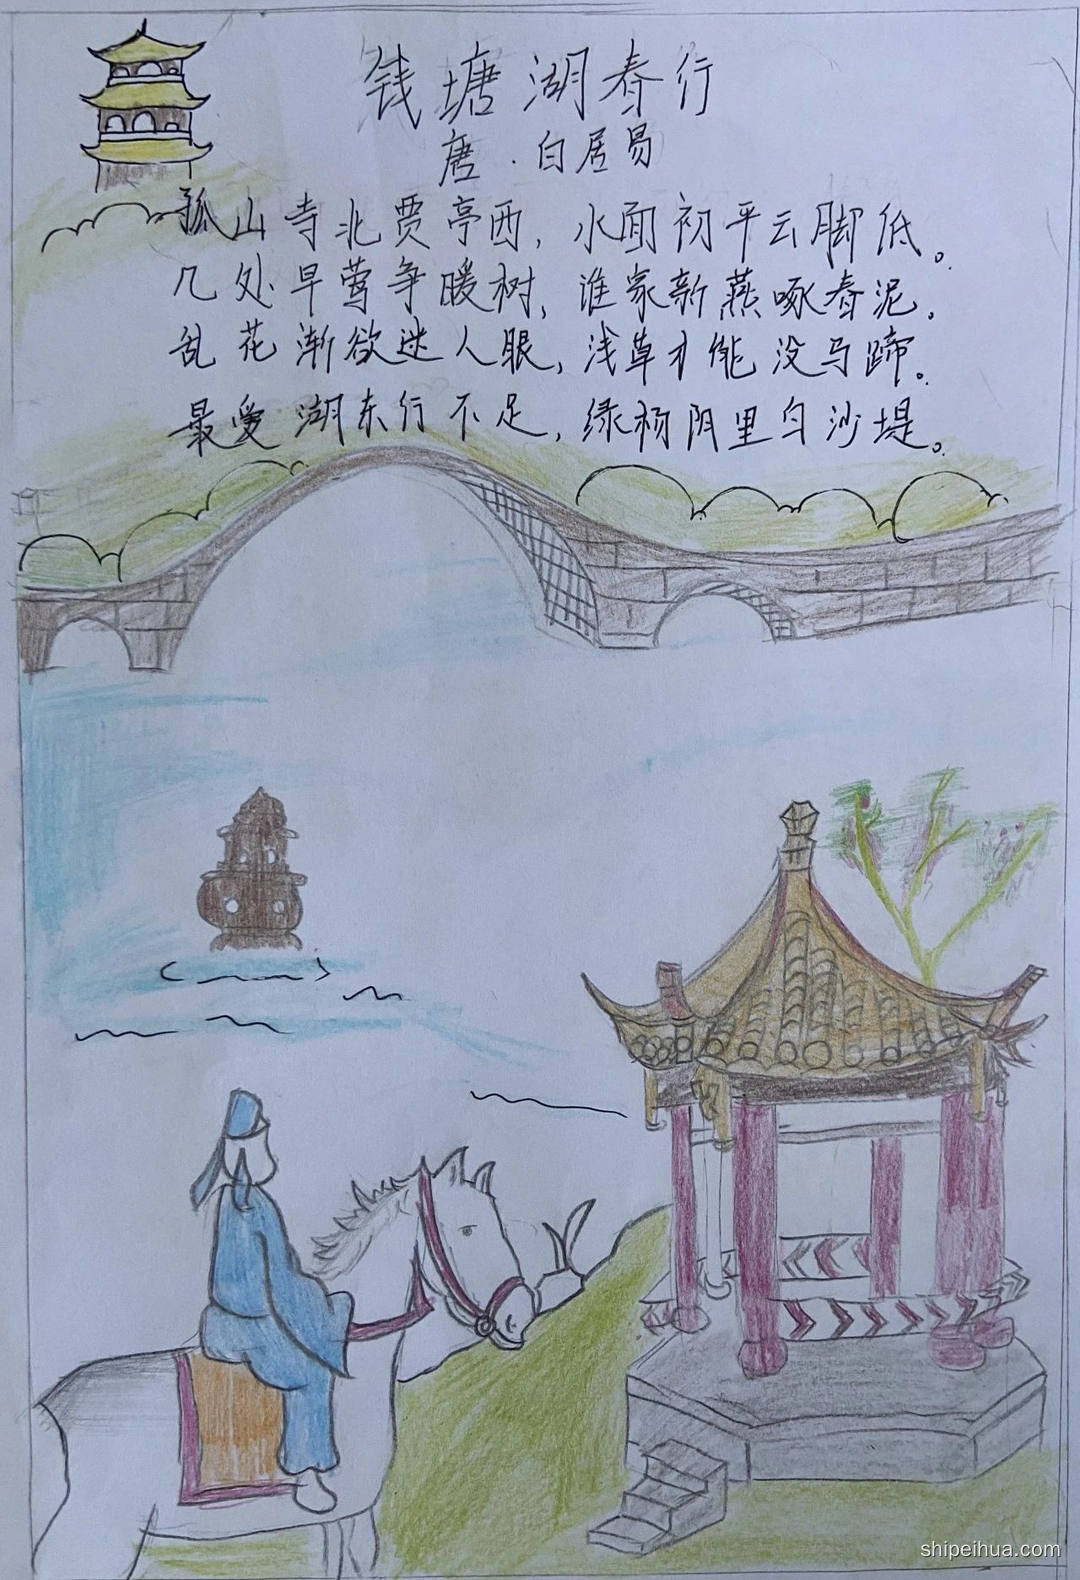 钱塘湖春行
唐.白居易
孤山寺北贾亭西，水面初平云脚低。
几处早莺争暖树，谁家新燕啄春泥。
乱花渐欲迷人眼，浅草才能没马蹄。
最爱湖东行不足，绿杨阴里白沙堤。
shipeihua.com